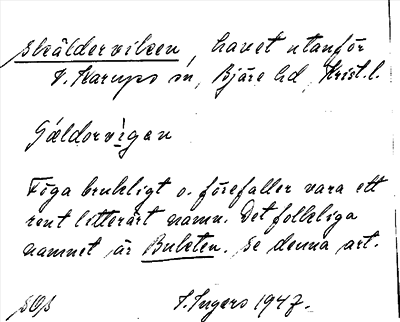 Skälderviken, havet utanför
V. Karups sn, Bjäre hd, Krist. l.
Föga brukligt o. förefaller vara ett
rent litterärt namn. Det folkliga
namnet är Bukten. Se denna art.
I. Ingers 1947.